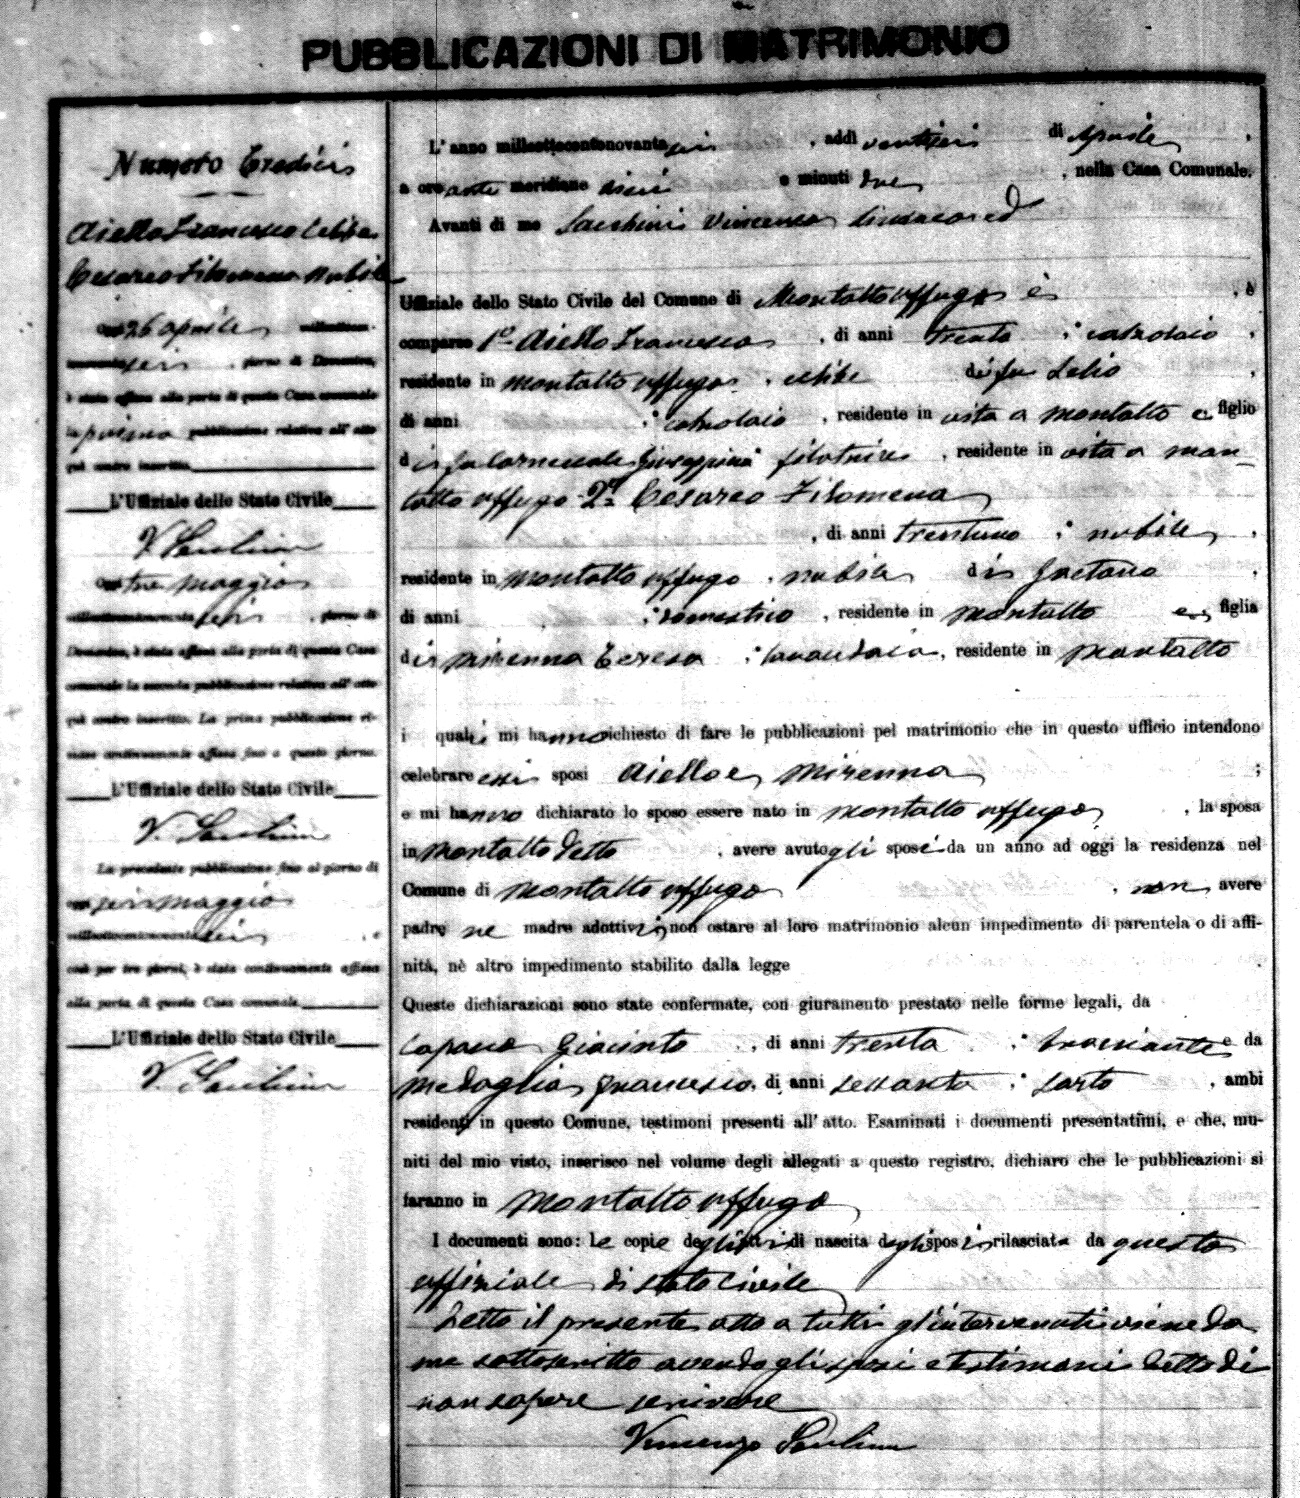 PUBBLICAZIONI DI MATRIMONIO
Numero tredici
Aiello Francesco celibe
Cesareo Filomena nubile
Oggi 26 aprile millottocen-
tonovantasei, giorno di Domenica,
è stata affissa alla porta di questa Casa comunale
la prima pubblicazione relativa all'atto
quì contro inscritto.
L'Uffiziale dello Stato Civile
V.
Oggi tre maggio
milleottocentonovantasei, giorno di
Domenica, è stata affissa alla porta di questa Casa
comunale la seconda pubblicazione relativa all'atto
quì contro inscritto. La prima pubblicazione ri-
mase continuamente affissa fino a questo giorno.
L'Uffiziale dello Stato Civile
V.
La precedente pubblicazione fino al giorno di
oggi sei maggio
milleottocentonovantasei, e
così per tre giorni, è stata continuamente affissa
alla porta di questa Casa comunale
L'Uffiziale dello Stato Civile
V.
L'anno millottocentonovantasei, addì ventisei di Aprile,
a ore ante meridiane dieci e minuti due, nella Casa Comunale.
Avanti di me Vincenzo Sindaco ed
Uffiziale dello Stato Civile del Comune di Montalto Uffugo è, è
comparso 1º Aiello Francesco, di anni trenta; calzolaio,
residente in Montalto Uffugo, celibe di fu Lelio,
di anni ; calzolaio, residente in vita a Montalto e figlio
di fu Carnevale Giuseppina filatrice, residente in vita a Mon-
talto Uffugo 2º Cesareo Filomena
, di anni trentuno; nubile,
residente in Montalto Uffugo, nubile di Gaetano,
di anni ; domestico, residente in Montalto e figlia
di Mirenna Teresa; lavandaia, residente in Montalto
i quali mi hanno richiesto di fare le pubblicazioni pel matrimonio che in questo ufficio intendono
celebrare essi sposi Aiello e Mirenna;
e mi hanno dichiarato lo sposo essere nato in Montalto Uffugo, la sposa
in Montalto detto, avere avuto gli sposi da un anno ad oggi la residenza nel
Comune di Montalto Uffugo, non avere
padre ne madre adottivi, non ostare al loro matrimonio alcun impedimento di parentela o di affi-
nità, nè altro impedimento stabilito dalla legge.
Queste dichiarazioni sono state confermate, con giuramento prestato nelle forme legali, da
Capano Giacinto, di anni trenta; bracciante e da
Medaglia Francesco, di anni sessanta; sarto, ambi
residenti in questo Comune, testimoni presenti all'atto. Esaminati i documenti presentatimi, e che, mu-
niti del mio visto, inserisco nel volume degli allegati a questo registro, dichiaro che le pubblicazioni si
faranno in Montalto Uffugo
I documenti sono: Le copie degli atti di nascita degli sposi rilasciate da questo
uffiziale di stato civile
Letto il presente atto a tutti gl'intervenuti viene da
me sottoscritto avendo gli sposi e testimoni detto di
non sapere scrivere
Vincenzo